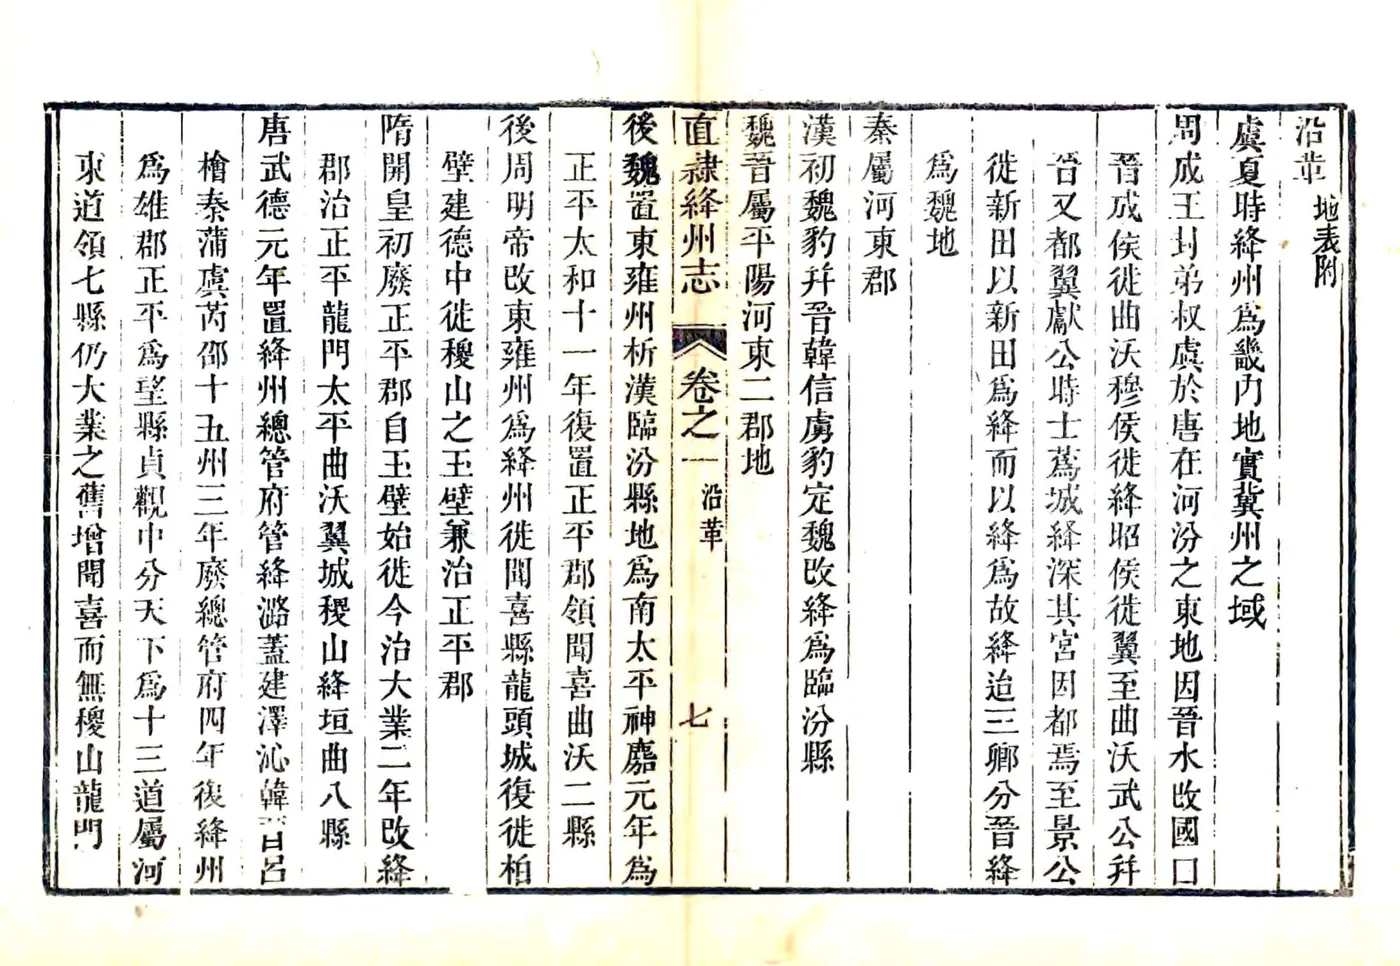 沿革 地表附
虞夏時絳州爲畿內地實冀州之域
周成王封弟叔虞於唐在河汾之東地因晉水改國口
晉成侯徙曲沃穆侯徙絳昭侯徙翼至曲沃武公幷
晉又都翼獻公時士蔿城絳深其宮因都焉至景公
徙新田以新田爲絳而以絳爲故絳迨三卿分晉絳
爲魏地
秦屬河東郡
漢初魏豹幷晉韓信虜豹定魏改絳爲臨汾縣
魏晉屬平陽河東二郡地
直隸絳州志 卷之一 沿革 七
後魏置東雍州析漢臨汾縣地爲南太平神䴥元年爲
正平太和十一年復置正平郡領聞喜曲沃二縣
後周明帝改東雍州爲絳州徙聞喜縣龍頭城復徙柏
壁建德中徙稷山之玉壁兼治正平郡
隋開皇初廢正平郡自玉壁始徙今治大業二年改絳
郡治正平龍門太平曲沃翼城稷山絳垣曲八縣
唐武德元年置絳州總管府管絳潞蓋建澤沁韓晉呂
檜泰蒲虞芮邵十五州三年廢總管府四年復絳州
爲雄郡正平爲望縣貞觀中分天下爲十三道屬河
東道領七縣仍大業之舊增聞喜而無稷山龍門